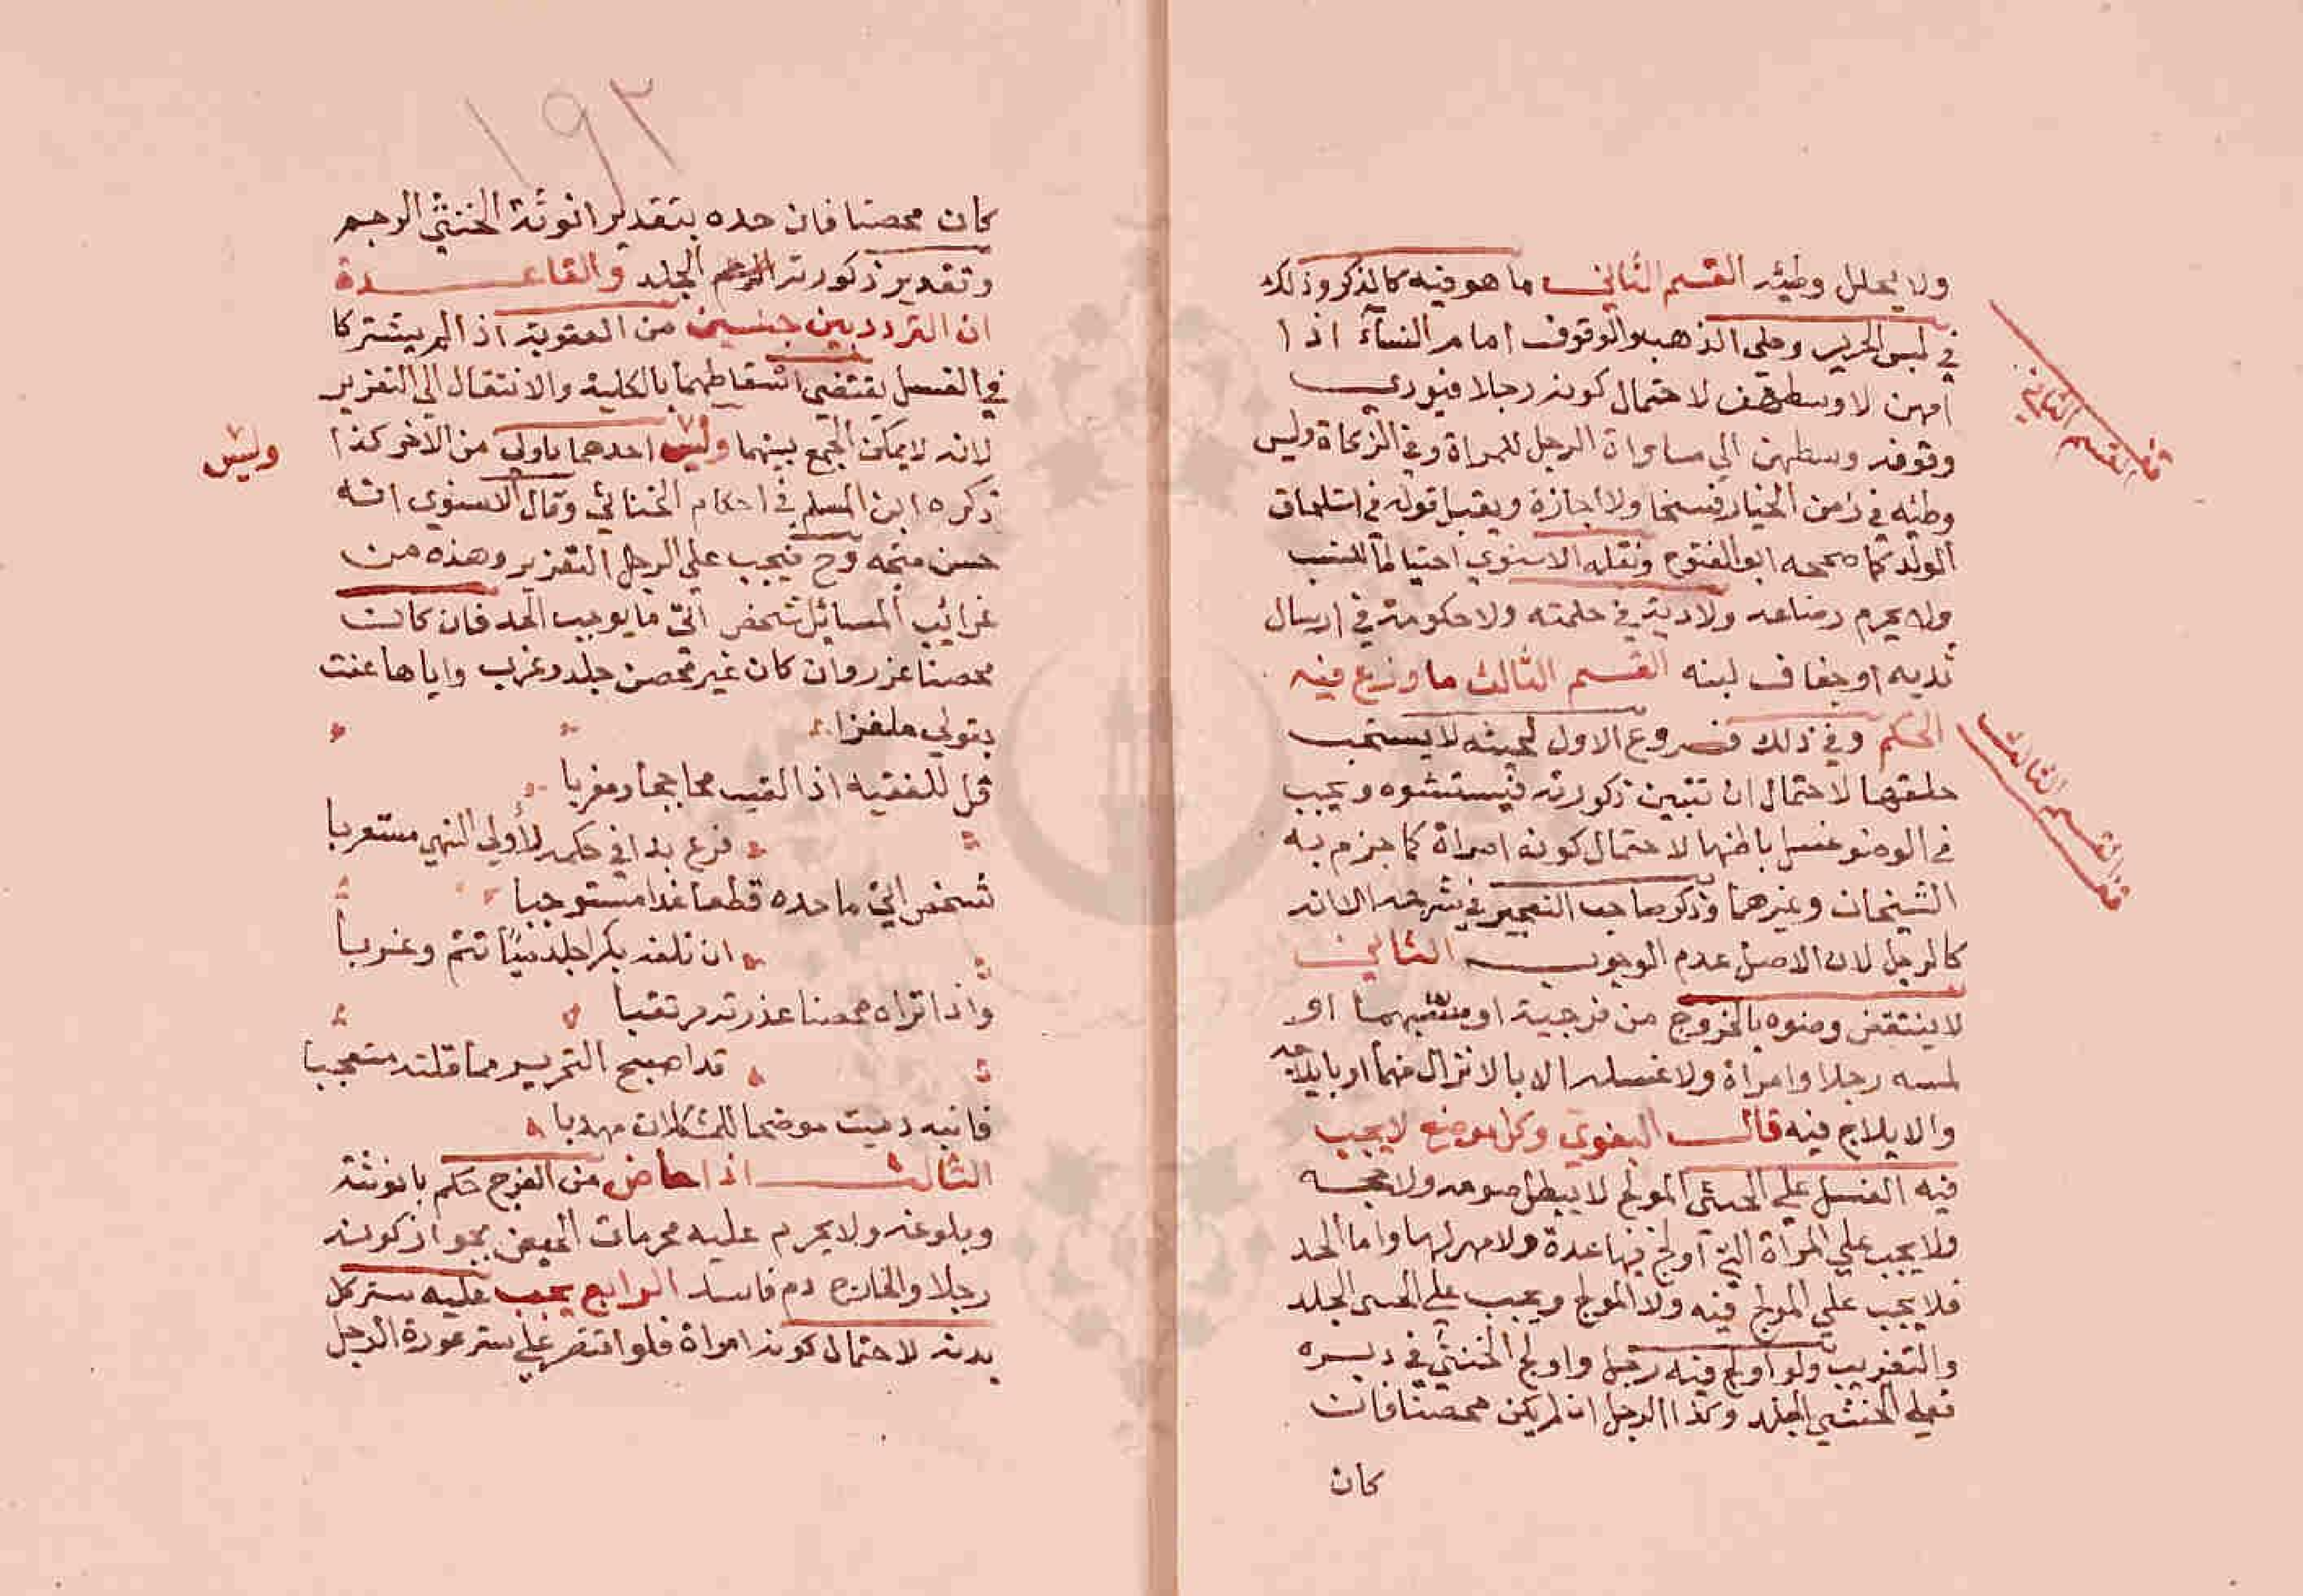 ولا يحلل وطيئه القسم الثاني ما هو فيه كالذكر وذلك
في لبس الحرير وحلي الذهب والوقوف امام النساء اذا
امهن لا وسطهن لاحتمال كونه رجلا فيودي
وقوفه وسطهن الي مساواة الرجل للمراة وفي الزكاة وليس
وطئه في زمن الخيار فسخا ولا اجازة ويقبل قوله في استلحاق
الولد كما صححه ابو الفتوح ونقله الاسنوي احتياطا للنسب
ولا يحرم رضاعه ولا دية في حلمته ولا حكومة في ارسال
ثديه او جفاف لبنه القسم الثالث ما وزع فيه
الحكم وفي ذلك فروع الاول لحيته لا يستحب
حلقها لاحتمال ان تتبين ذكورته فيستشوه ويجب
في الوضو غسل باطنها لاحتمال كونه امراة كما جزم به
الشيخان وغيرهما وذكر صاحب التعجيز في شرحه الا انه
كالرجل لان الاصل عدم الوجوب الثاني
لا ينتقض وضوه بالخروج من فرجيه او مسهما او
لمسه رجلا وامراة ولا غسله الا بالانزال منهما او بايلاجه
والايلاج فيه قال البغوي وكل موضع لا يجب
فيه الغسل علي الخنثي المولج لا يبطل صومه ولا حجه
ولا يجب علي المراة التي اولج فيها عدة ولا مهر لها واما الحد
فلا يجب علي المولج فيه ولا المولج ويجب علي الخنثي الجلد
والتغريب ولو اولج فيه رجل واولج الخنثي في دبره
فعلي الخنثي الجلد وكذا الرجل ان لم يكن محصنا فان
كان
قف القسم الثاني
قف القسم الثالث
١٩٢
كان محصنا فان حده بتقدير انوثة الخنثي الرجم
وتقدير ذكورته الجلد والقاعدة
ان التردد بين جنسين من العقوبة اذا لم يشتركا
في الغسل يقتضي اسقاطهما بالكلية والانتقال الي التعزير
لانه لا يمكن الجمع بينهما وليس احدهما باولي من الاخر كذا
وليس
ذكره ابن المسلم في احكام الخناثي وقال الاسنوي انه
حسن متجه وح فيجب علي الرجل التعزير وهذه من
غرائب المسائل شخص اتي ما يوجب الحد فان كانت
محصنا عزر وان كان غير محصن جلد وغرب واياها عنت
بقولي ملغزا
قل للفقيه اذا لقيت محاججا ومغربا
فرع بدا في حكمه لاولي النهي مستعربا
شخص اتي ما حده قطعا غدا مستوجبا
ان تلفه بكرا جلدت مئا تتم وغربا
واذا تراه محصنا عذرته مرتقبا
قد اصبح التحرير مما قلته متعجبا
فانبه دميت موضحا للمشكلات مهذبا
الثالث اذا حاض من الفرج حكم بانوثته
وبلوغه ولا يحرم عليه محرمات الحيض بجواز كونه
رجلا والخارج دم فاسد الرابع يجب عليه ستر كل
بدنه لاحتمال كونه امراة فلو اقتصر علي ستر عورة الرجل